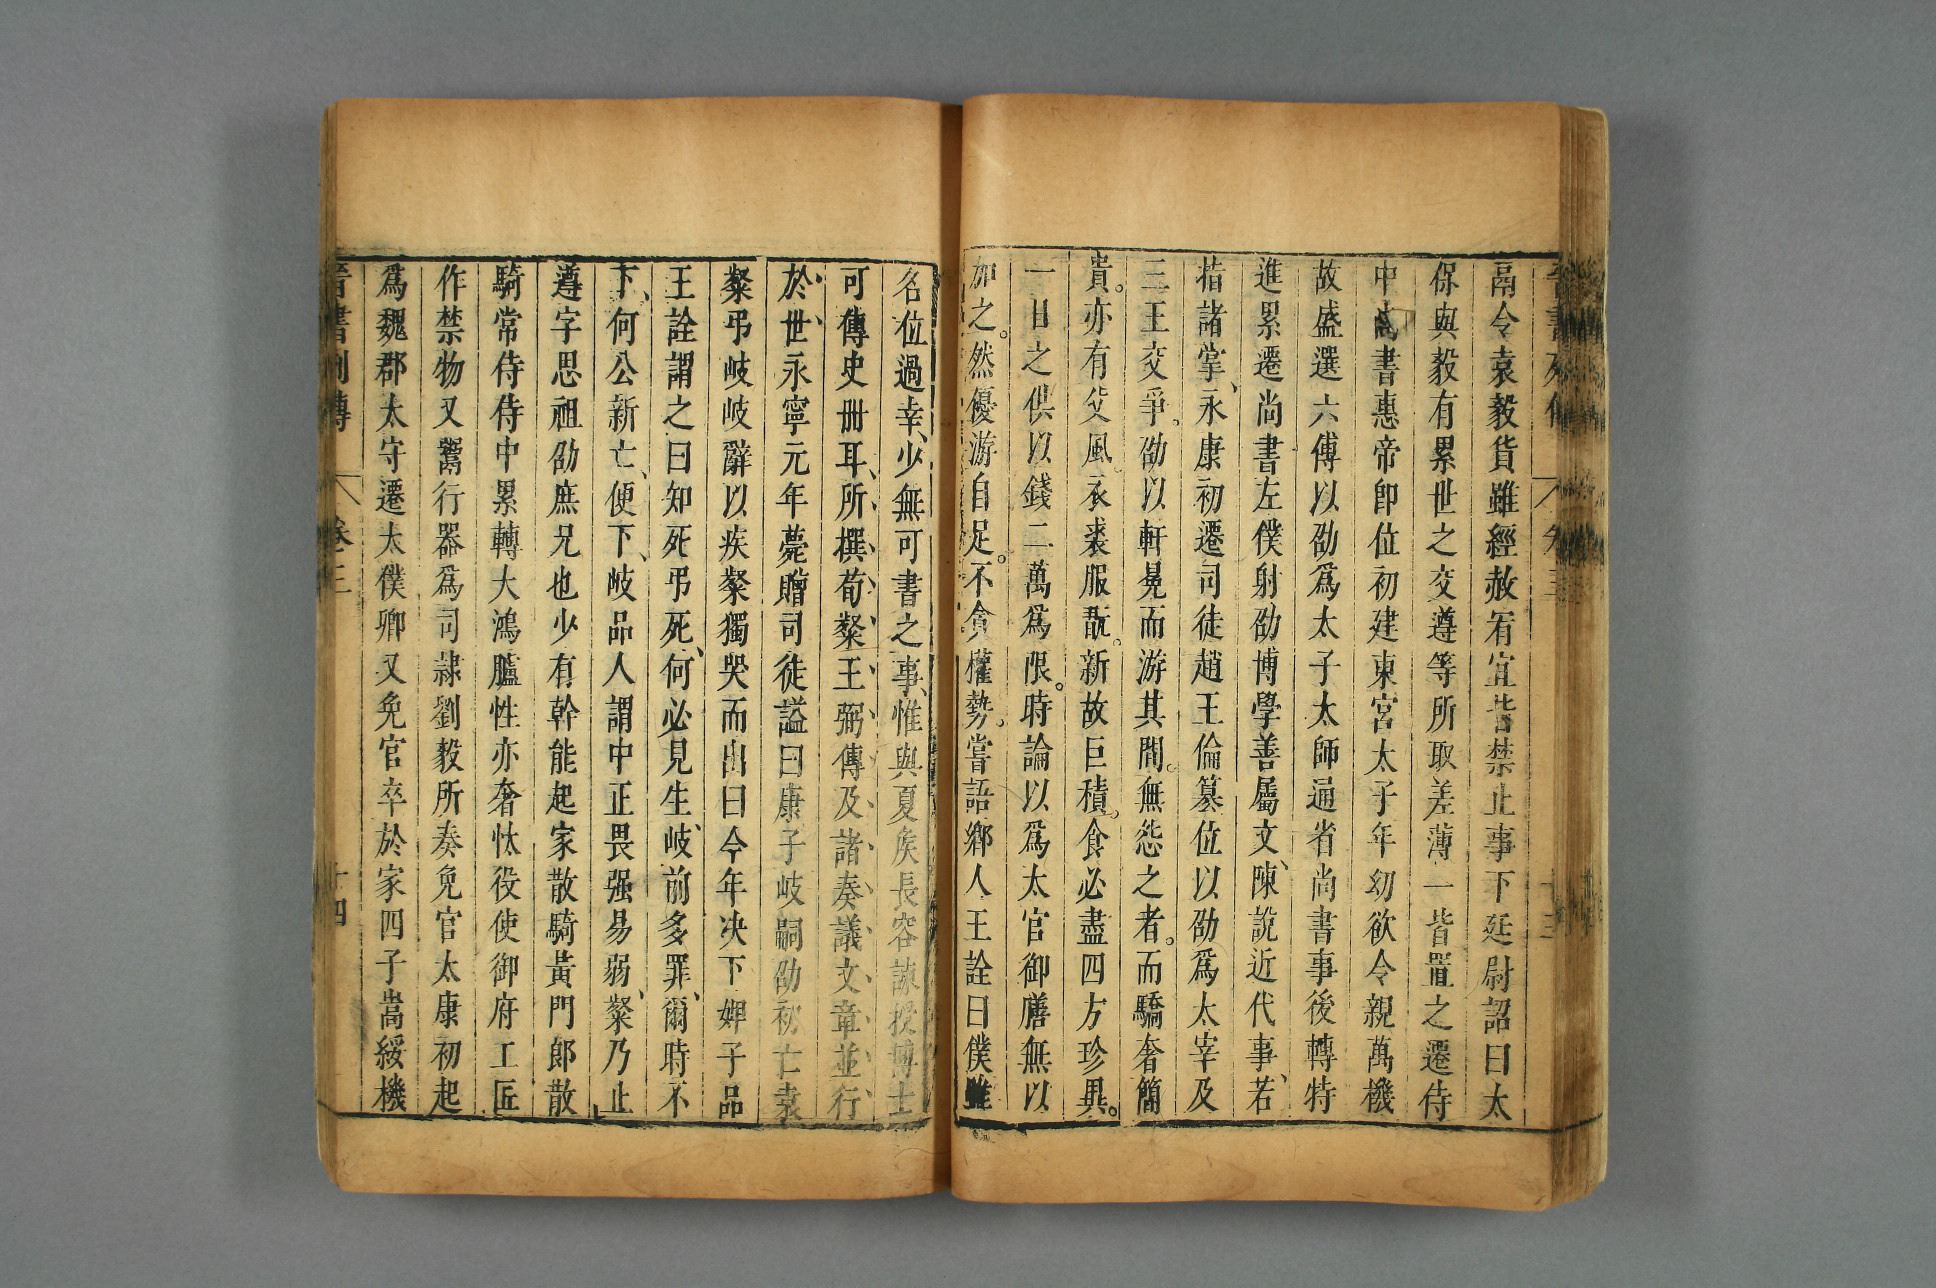 鬲令袁毅貨雖經赦宥宜皆禁止事下廷尉詔曰太
保與毅有累世之交遵等所取差薄一皆置之遷侍
中尚書惠帝卽位初建東宮太子年幼欲令親萬機
故盛選六傅以劭爲太子太師通省尚書事後轉特
進累遷尚書左僕射劭博學善屬文、陳說近代事、若
指諸掌、永康初遷司徒趙王倫簒位以劭爲太宰及
三王交爭。劭以軒冕而游其間。無怨之者。而驕奢簡
貴。亦有父風。衣裘服翫。新故巨積。食必盡四方珍異。
一日之供以錢二萬爲限。時論以爲太官御膳無以
加之。然優游自足。不貪權勢。嘗語鄉人王詮曰僕雖
名位過幸、少無可書之事、惟與夏矦長容諫授博士
可傳史冊耳、所撰荀粲王弼傳及諸奏議文章並行
於世永寧元年薨贈司徒謚曰康子岐嗣劭初亡袁
粲弔岐岐辭以疾粲獨哭而出曰今年决下婢子品
王詮謂之曰知死弔死、何必見生、岐前多罪、爾時不
下、何公新亡、便下、岐品人謂中正畏强易弱、粲乃止
遵字思祖劭庶兄也少有幹能起家散騎黃門郎散
騎常侍侍中累轉大鴻臚性亦奢忲役使御府工匠
作禁物又鬻行器爲司隷劉毅所奏免官太康初起
爲魏郡太守遷太僕卿又免官卒於家四子嵩綏機
晉書列傳 卷三 十四